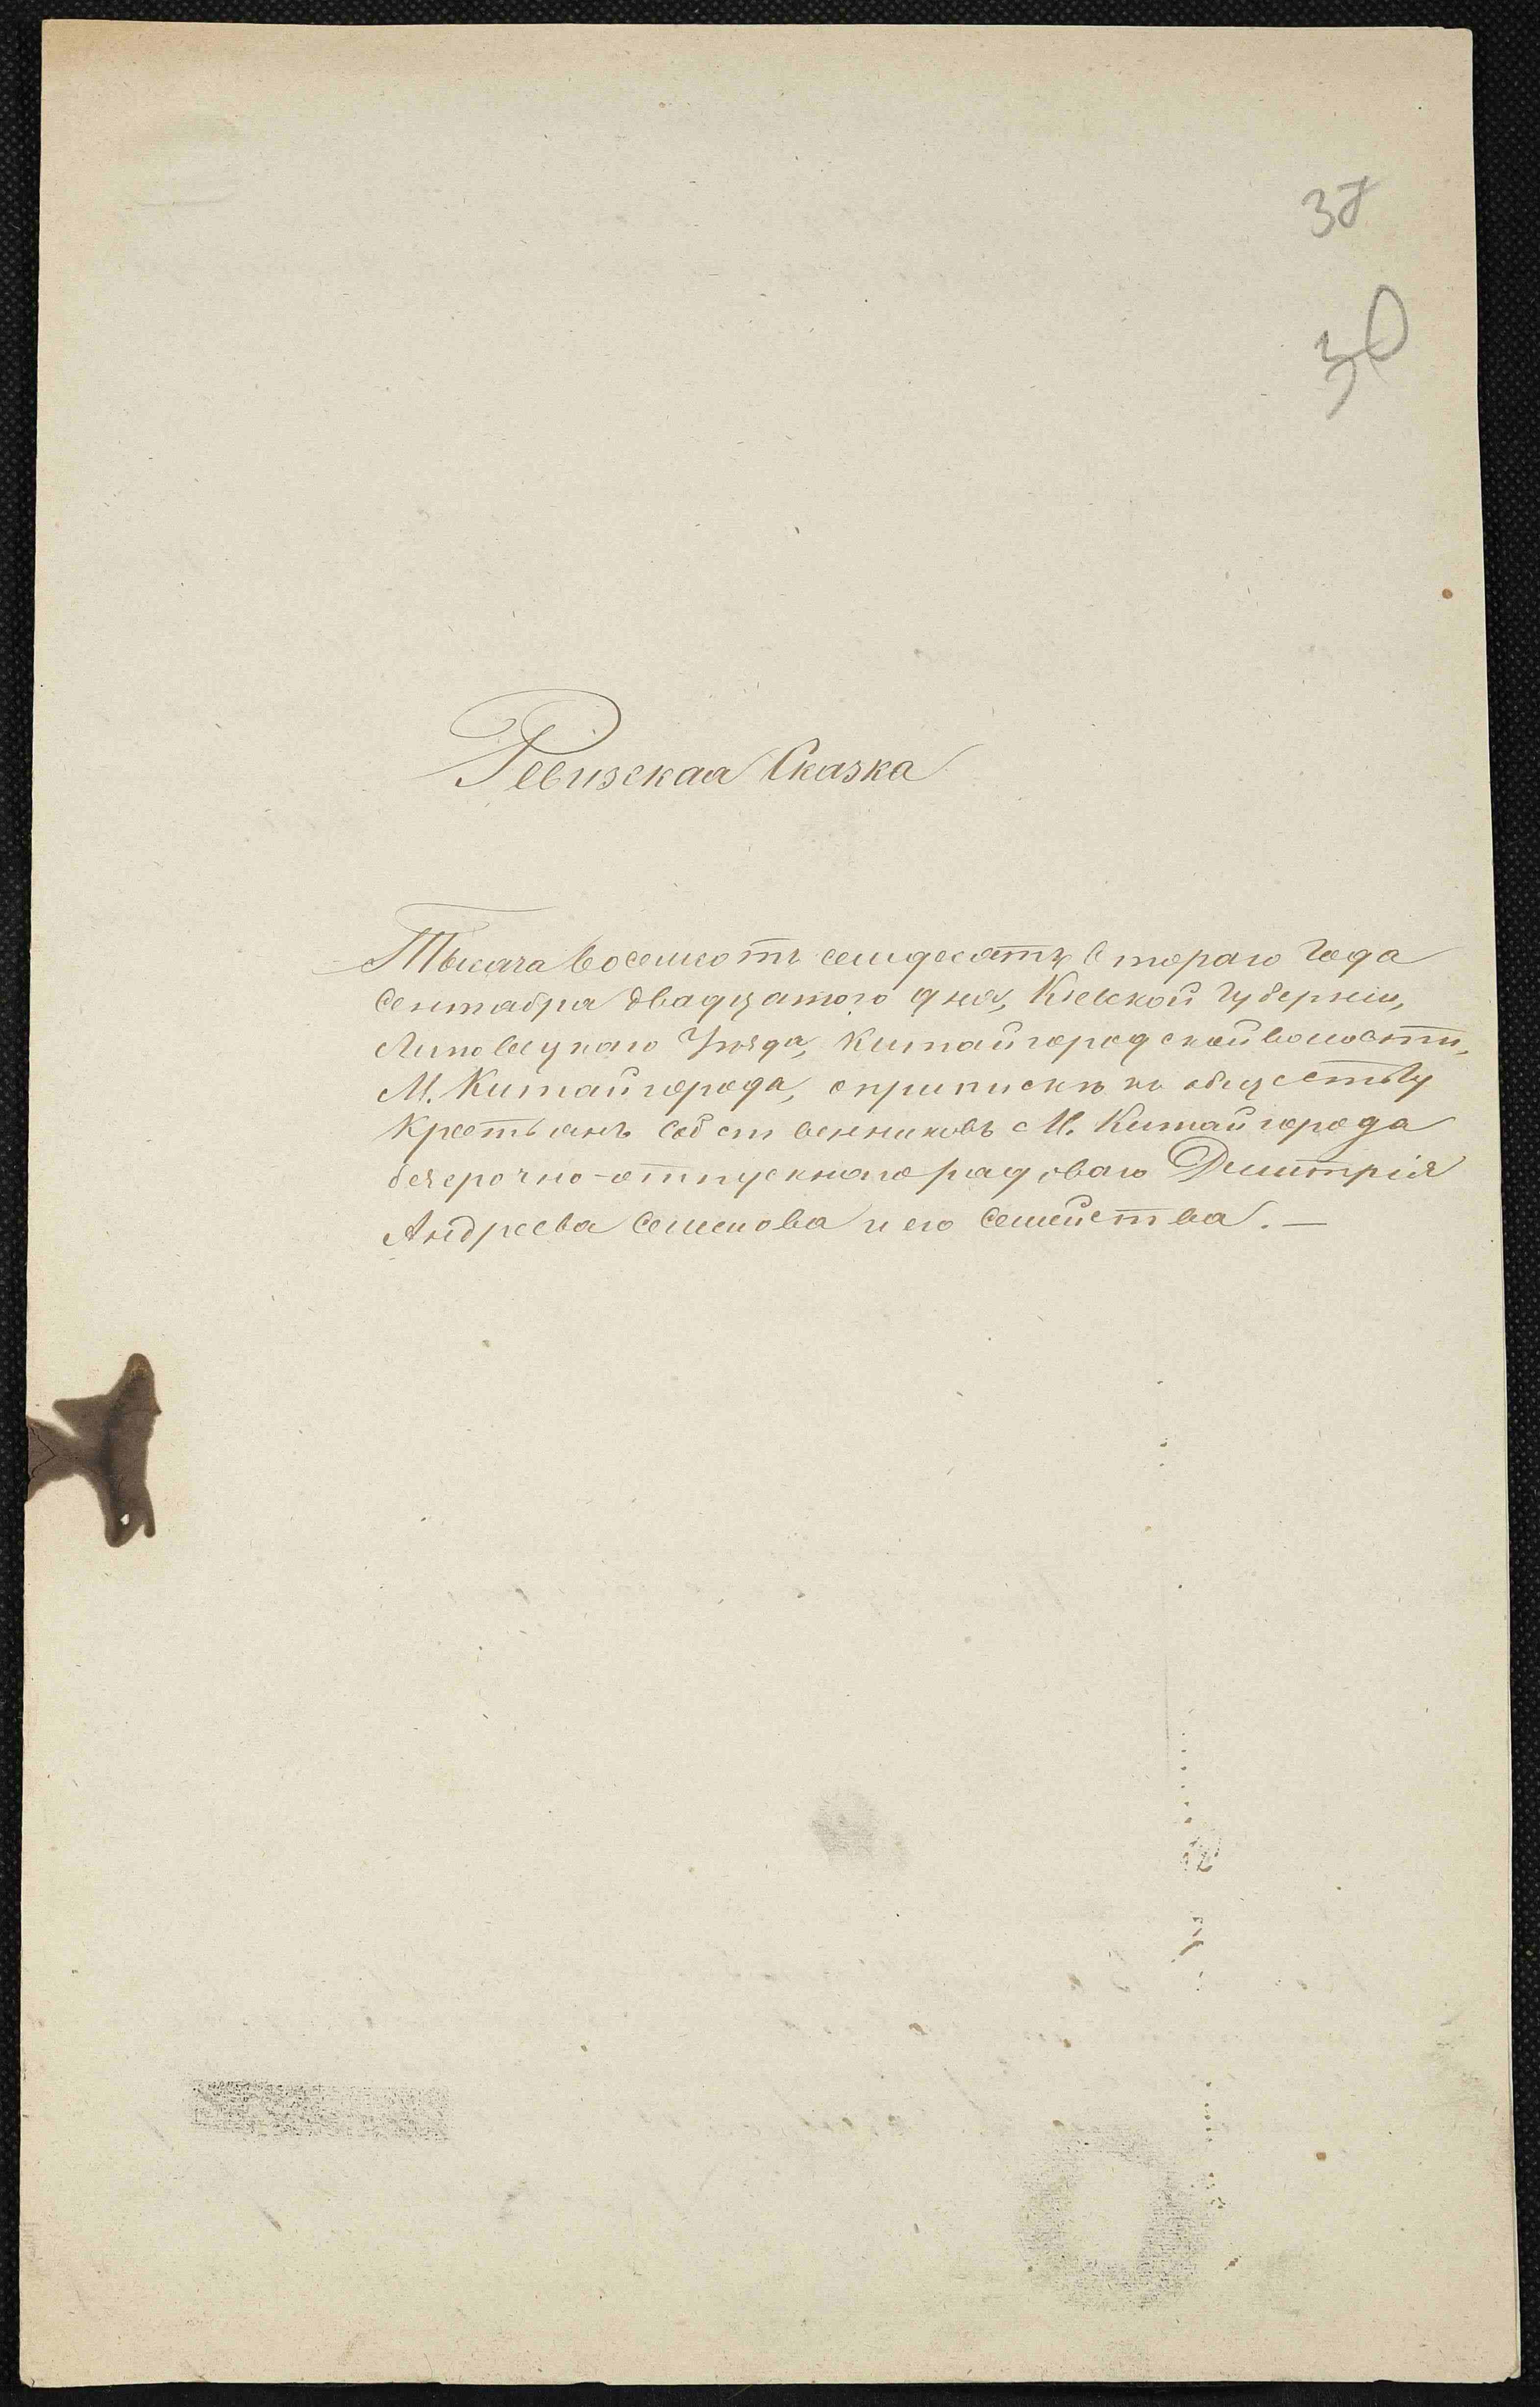 37
30
Ревизская Сказка
Тысяча восемсотъ семдесятъ втораго года
Сентября двадцатого дня, Кіевской Губерніи,
Липовецкаго Уѣзда, Китайгородской волости,
М. Китайгорода, о припискѣ къ обществу
Крестьянъ Собственниковъ М. Китайгорода
безсрочно-отпускнаго рядоваго Дмитрія
Андреева Семенова и его Семейства. —